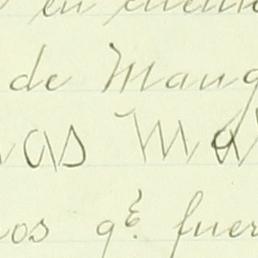 en cuen
de Mang
as Ma
os qᵉ. fuer